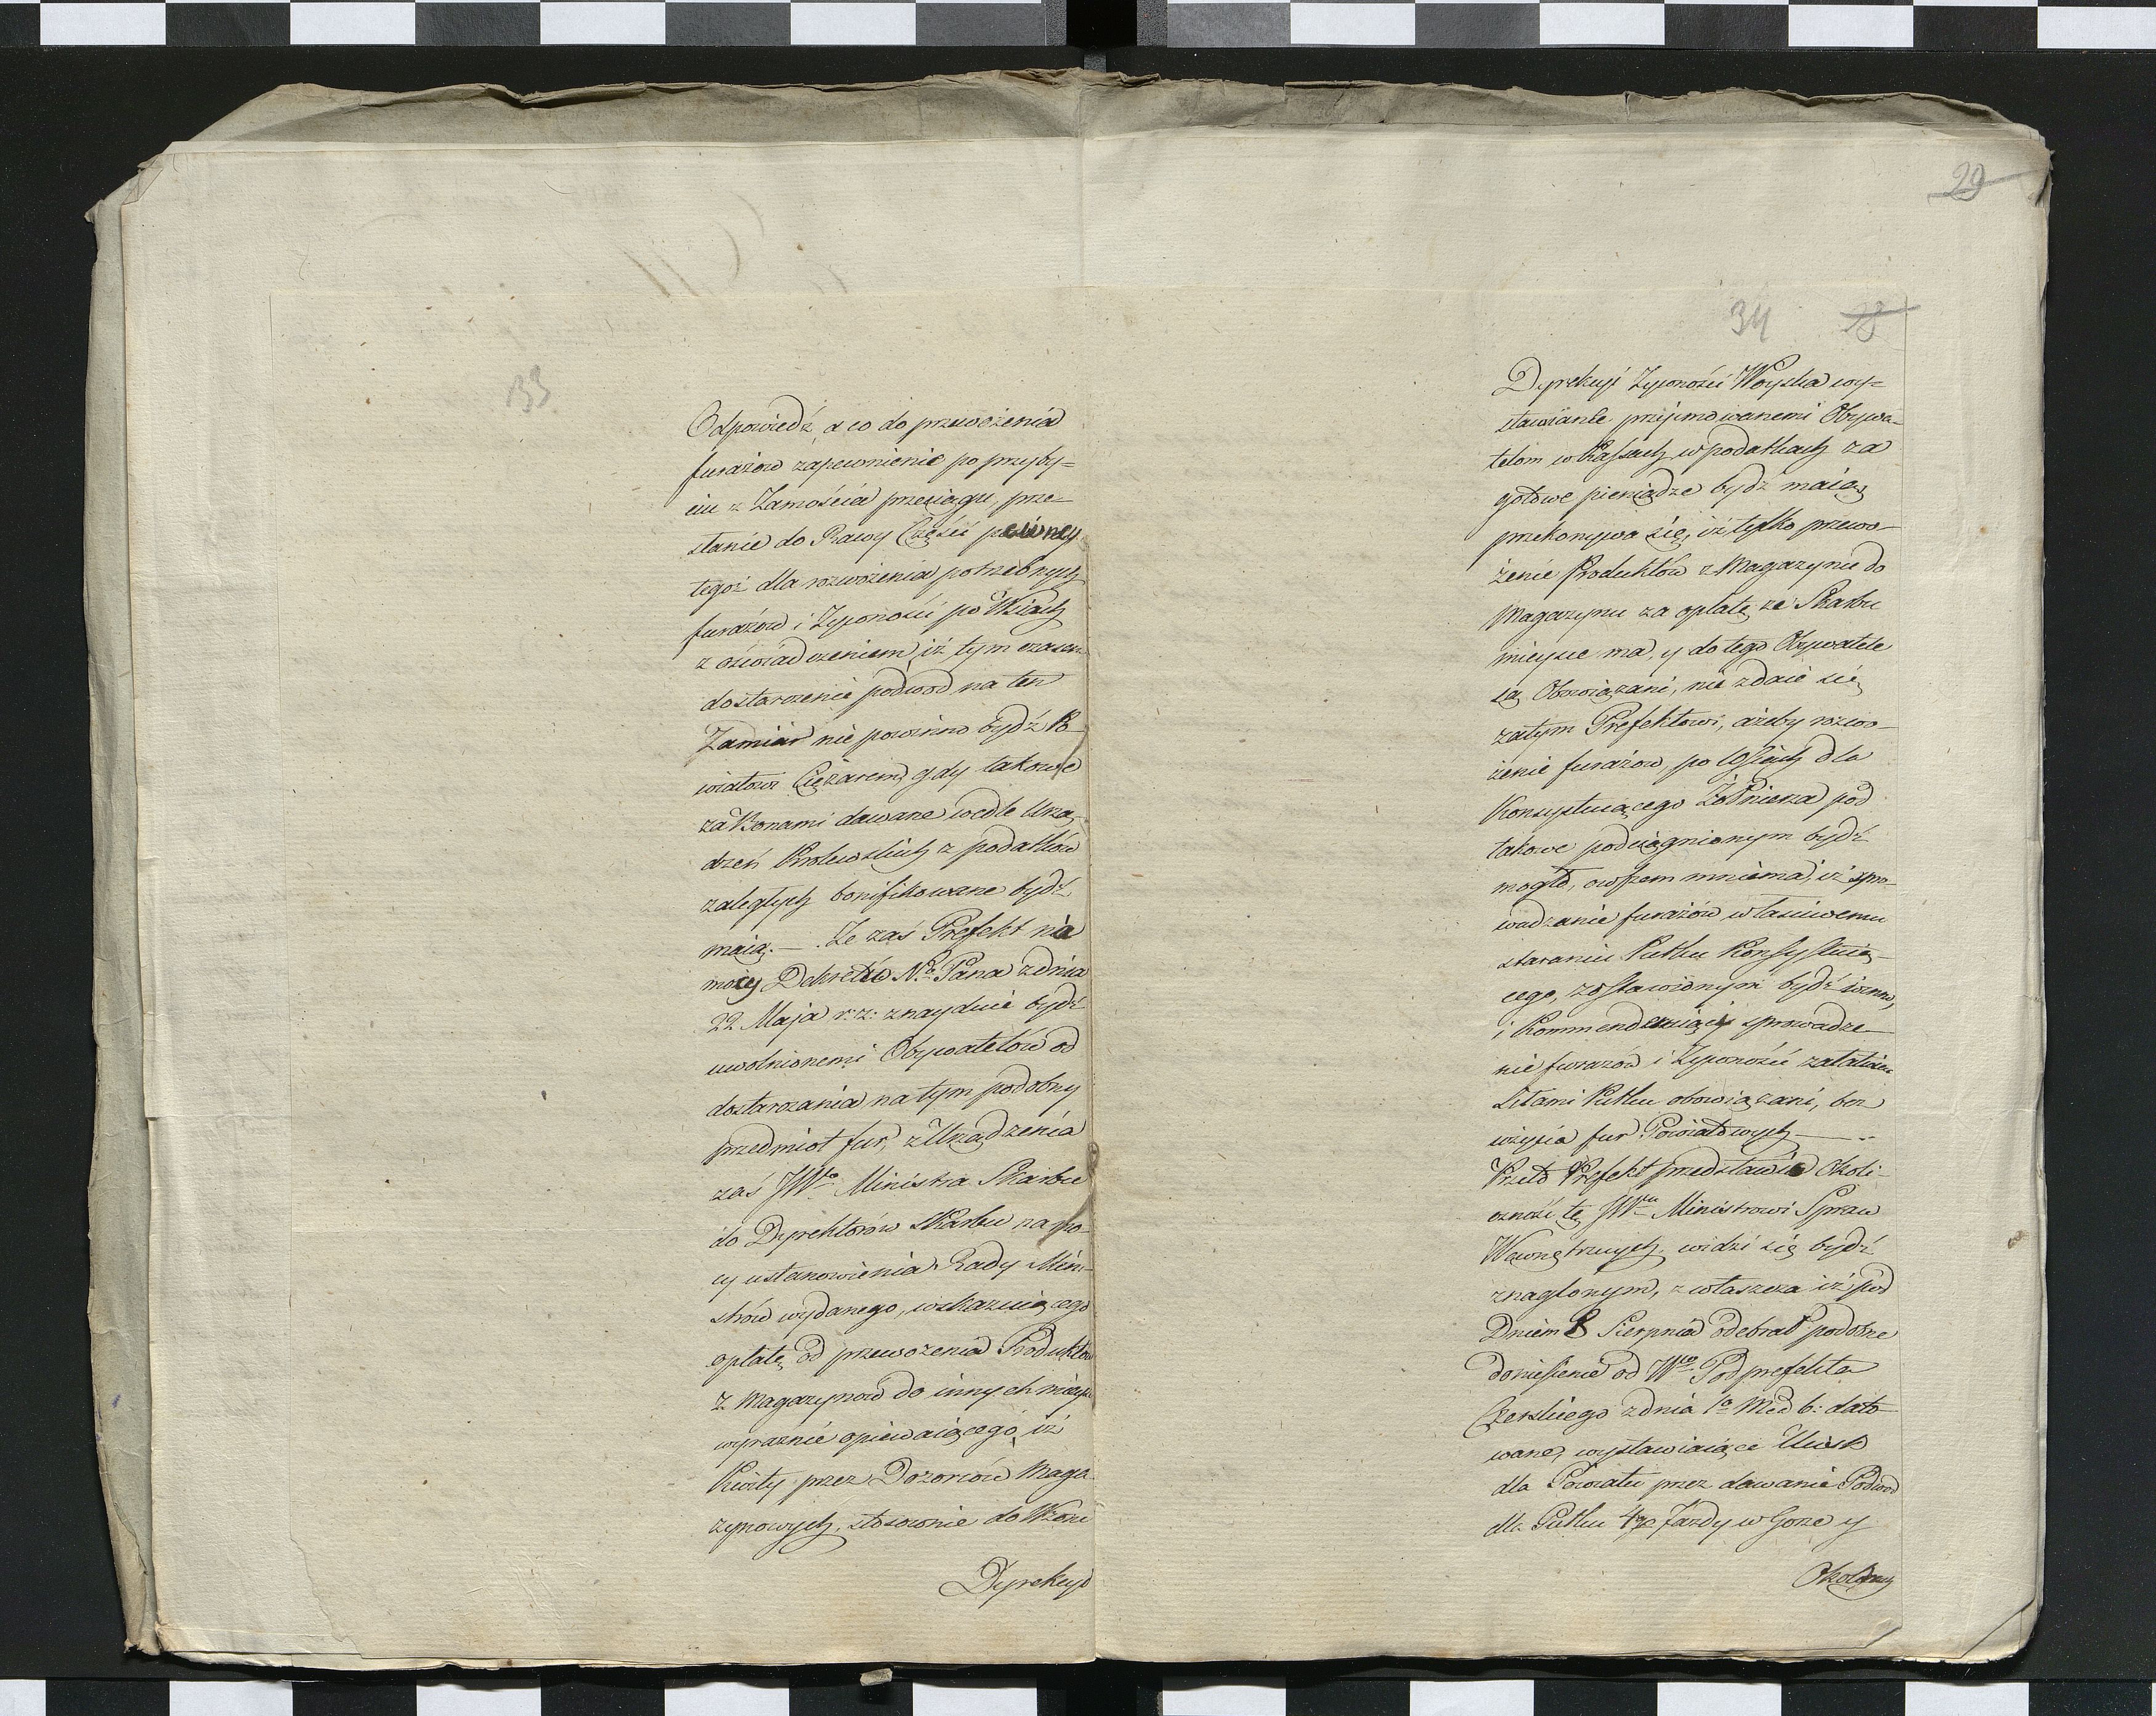 33
Odpowiedź, a co do przewożenia
furażow zapewnienie po przyby=
ciu z Zamościa przeciągu, prze-
stanie do Rawy Części pewney
tegoż dla rozwożenia potrzebnych
furażow i Żywności po Wsiach
z oświadczeniem, iż tym czasem
dostarczenie podwod na ten
Zamiar nie powinno bydź Po-
wiatowi Ciężarem, gdy takowe
za Bonami dawane wedle Urzą-
dzeń Krolewskich z podatków
zaległych bonifikowane bydź
maią. — Że zaś Prefekt na
mocy Dekretu No Pana z dnia
22 Maja r: z: znayduie bydź
uwolnionemi Obywatelów od
dostarczania na tym podobny
przedmiot fur, z Urządzenia
zaś JWgo Ministra Skarbu
do Dyrektorów Skarbu na mo-
cy ustanowienia Rady Mini-
strów wydanego, wskazuiącego
opłatę od przewożenia Produktów
z Magazynow do innych mieysc
wyraznie opiewaiącego, iż
Kwity przez Dozorców Maga-
zynowych, stosownie do Wzoru
Dyrekcyi
29
34 18
Dyrekcyi Żywności Woyska wy=
stawiane przyimowanemi Obywa-
telom w Kassach w podatkach za
gotowe pieniądze bydz maią,
przekonywa się, iż tylko przewo-
żenie Produktów z Magazynu do
Magazynu za opłatę ze Skarbu
mieysce ma, y do tego Obywatele
są Obowiązani, nie zdaie się
zatym Prefektowi, ażeby rozwo-
żenie furażow, po Wsiach dla
Konsystuiącego Żołnierza pod
takowe podciągnionym bydź
mogło, owszem mniema, iż spro-
wadzanie furażów właściwemu
staraniu Pułku Konsystuią-
cego, zostawionym bydź winno,
i Kommenderuiący sprowadze-
nie furażów i Żywności
Pułku obowiązani, bez
użycia fur Powiatowych —
Przeto Prefekt przedstawia Okoli-
czność tę JWmu Ministrowi Spraw
Wewnętrznych, widzi się bydź
znaglonym, zwłaszcza iż pod
Dniem 8 Sierpnia odebrał podobne
doniesienie od Wgo Podprefekta
Czerskiego z dnia 1o M. b: dato-
wane, wystawiaiące Ucisk
dla Powiatu przez dawanie Podwod
dla Pułku 4go Jazdy w Gorze y
Okolicznych